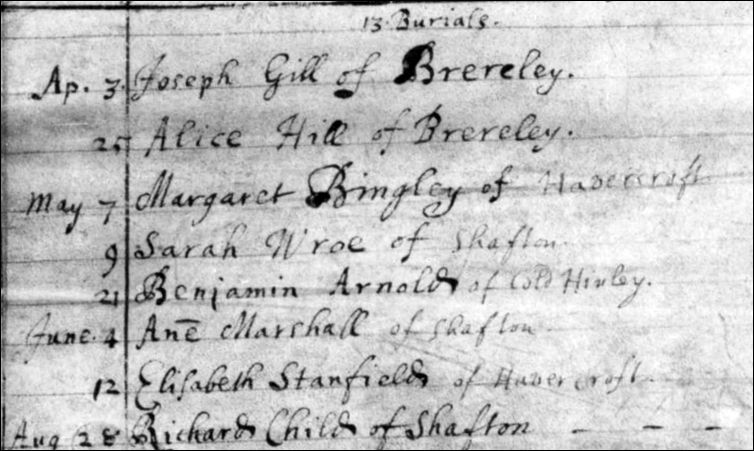 13. Burials.
Ap. 3. Joseph Gill of Brereley.
25 Alice Hill of Brereley.
May 7 Margaret Bingley of Havercroft
9 Sarah Wroe of Shafton.
21 Benjamin Arnold of Cold Hinley.
June. 4 Anē Marshall of Shafton
12 Elisabeth Stanfield of Havercroft.
Aug 28 Richard Child of Shafton - - -